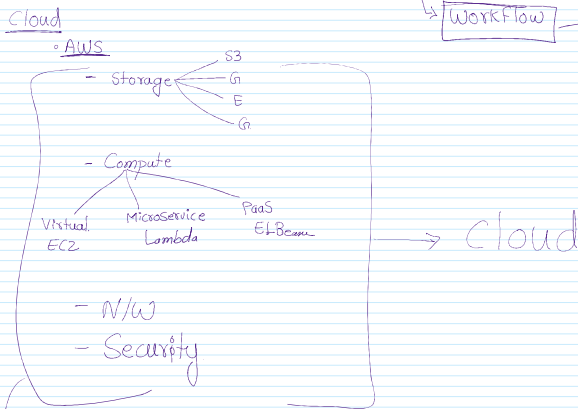 Cloud
Workflow
AWS
- Storage
S3
G
E
G
- Compute
Virtual
EC2
Microservice
Lambda
PaaS
Cloud
- N/W
- Security